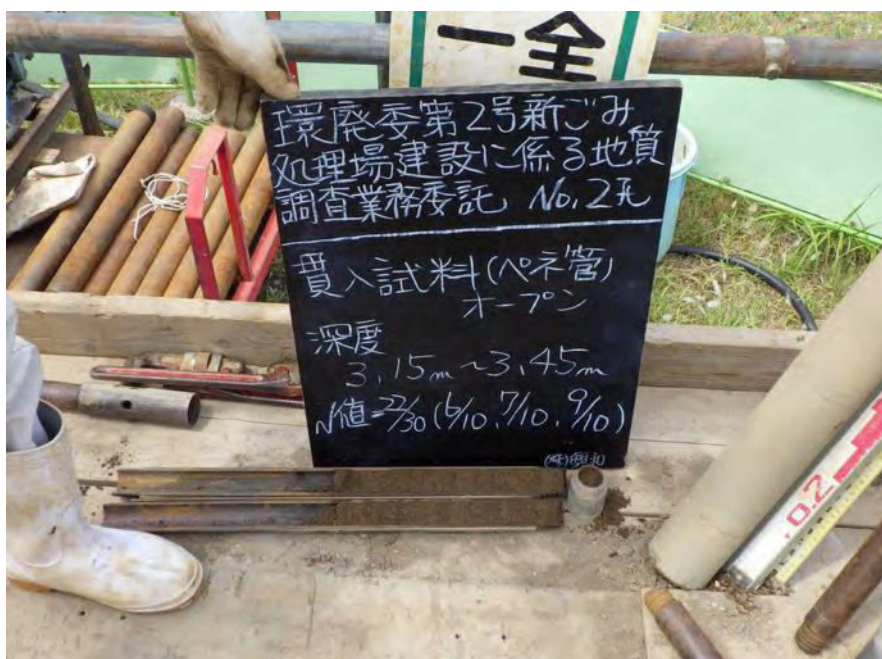 一全
環廃委第2号新ごみ
処理場建設に係る地質
調査業務委託 No.2孔
貫入試料(ペネ管)
オープン
深度
3.15m~3.45m
N値=22/30(6/10, 7/10, 9/10)
(株)興和
0.2